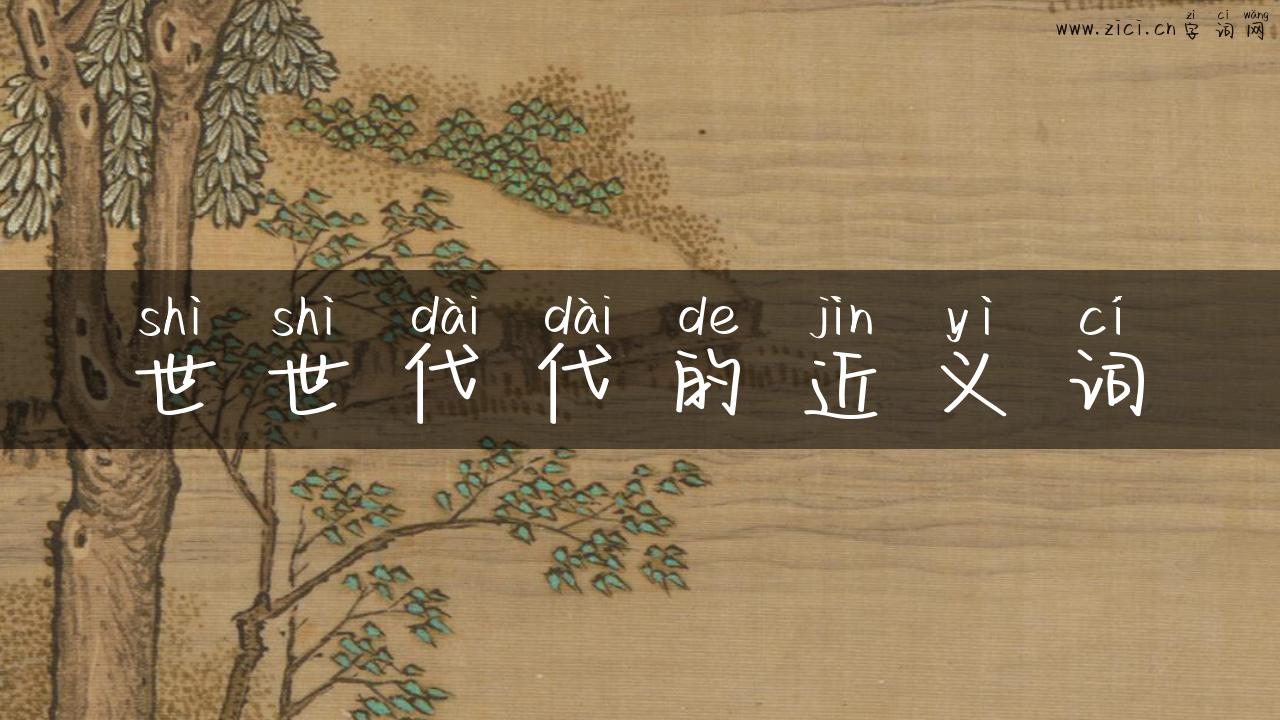 zì cí wǎng
www.zici.cn 字 词 网
shì shì dài dài de jìn yì cí
世 世 代 代 的 近 义 词